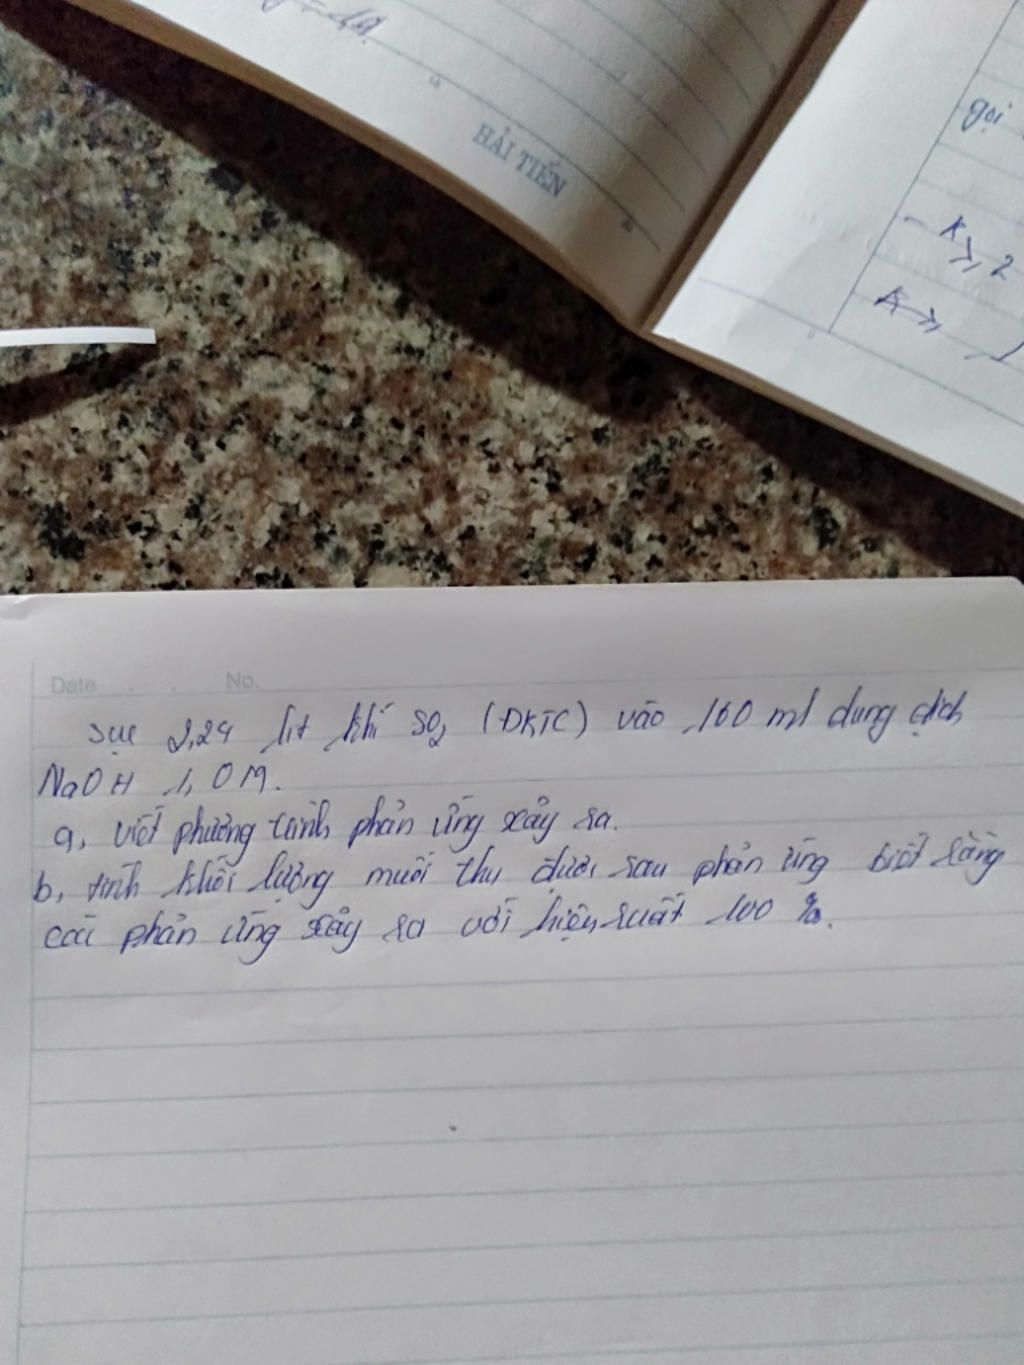 HẢI TIẾN
gọi
Date . . No.
Sục 2,24 lít khí SO2 (ĐKTC) vào 160 ml dung dịch
NaOH 1,0M.
a, viết phương trình phản ứng xảy ra.
b, tính khối lượng muối thu được sau phản ứng biết rằng
các phản ứng xảy ra với hiệu suất 100 %.